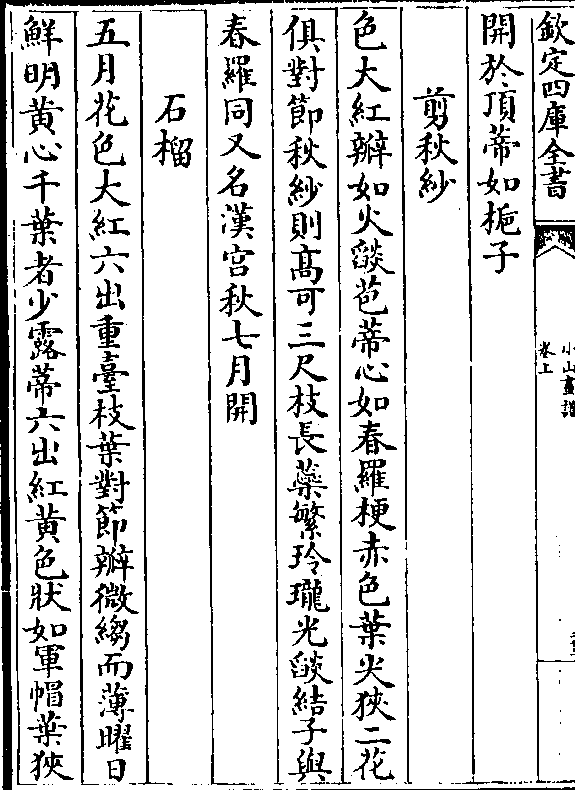 欽定四庫全書
小山畫譜
卷上
開於頂蒂如梔子
剪秋紗
色大紅瓣如火燄苞蒂心如春羅梗赤色葉尖狹二花
俱對節秋紗則髙可三尺枝長蘂繁玲瓏光燄結子與
春羅同又名漢宫秋七月開
石榴
五月花色大紅六出重臺枝葉對節瓣微縐而薄曜日
鮮明黄心千葉者少露蒂六出紅黄色狀如軍帽葉狹